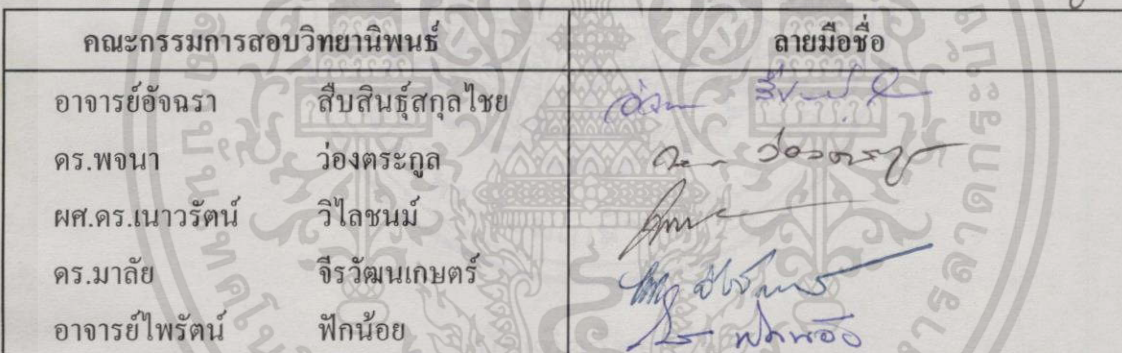 คณะกรรมการสอบวิทยานิพนธ์ ลายมือชื่อ
อาจารย์อัจฉรา สืบสินธุ์สกุลไชย
ดร.พจนา ว่องตระกูล
ผศ.ดร.เนาวรัตน์ วิไลชนม์
ดร.มาลัย จีรวัฒนเกษตร์
อาจารย์ไพรัตน์ ฟักน้อย